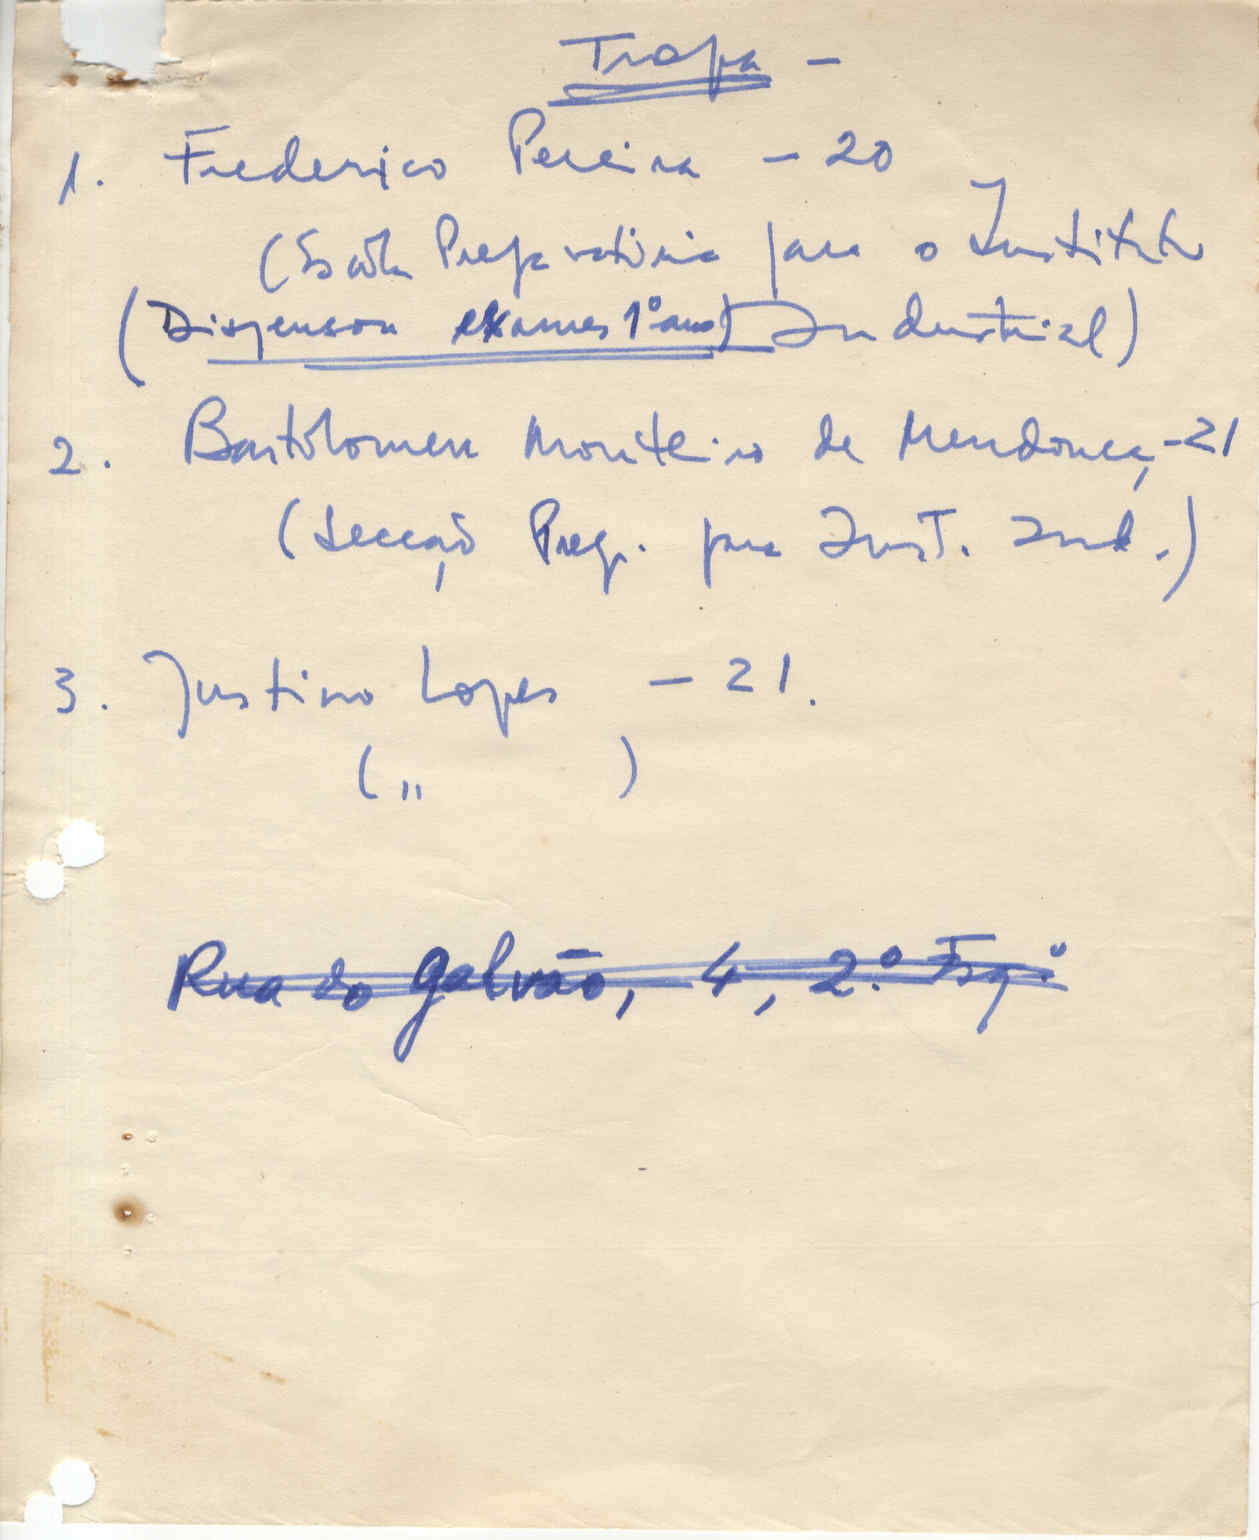 Tropa -
1. Frederico Pereira - 20
(Escola Preparatória para o Instituto
(Dispensou exames 1º ano) Industrial)
2. Bartolomeu Monteiro de Mendonça - 21
(Secção Prep. para Inst. Ind.)
3. Justino Lopes - 21.
(" )
Rua do Galvão, 4, 2.º Esq.º